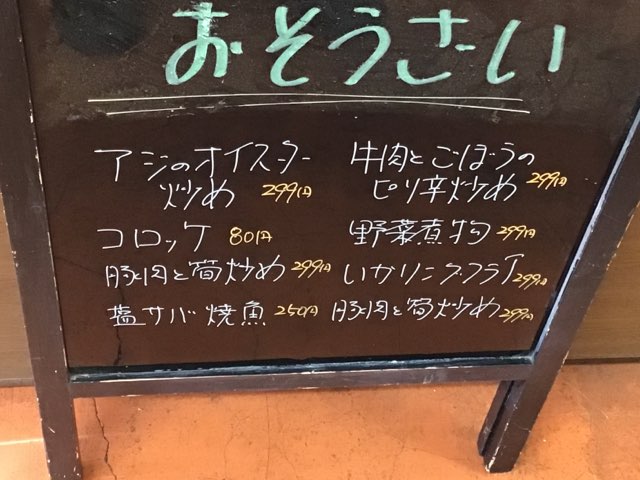 おそうざい
アジのオイスター
炒め 299円
コロッケ 80円
豚肉と筍炒め 299円
塩サバ焼魚 250円
牛肉とごぼうの
ピリ辛炒め 299円
野菜煮物 299円
いかリングフライ 299円
豚肉と筍炒め 299円